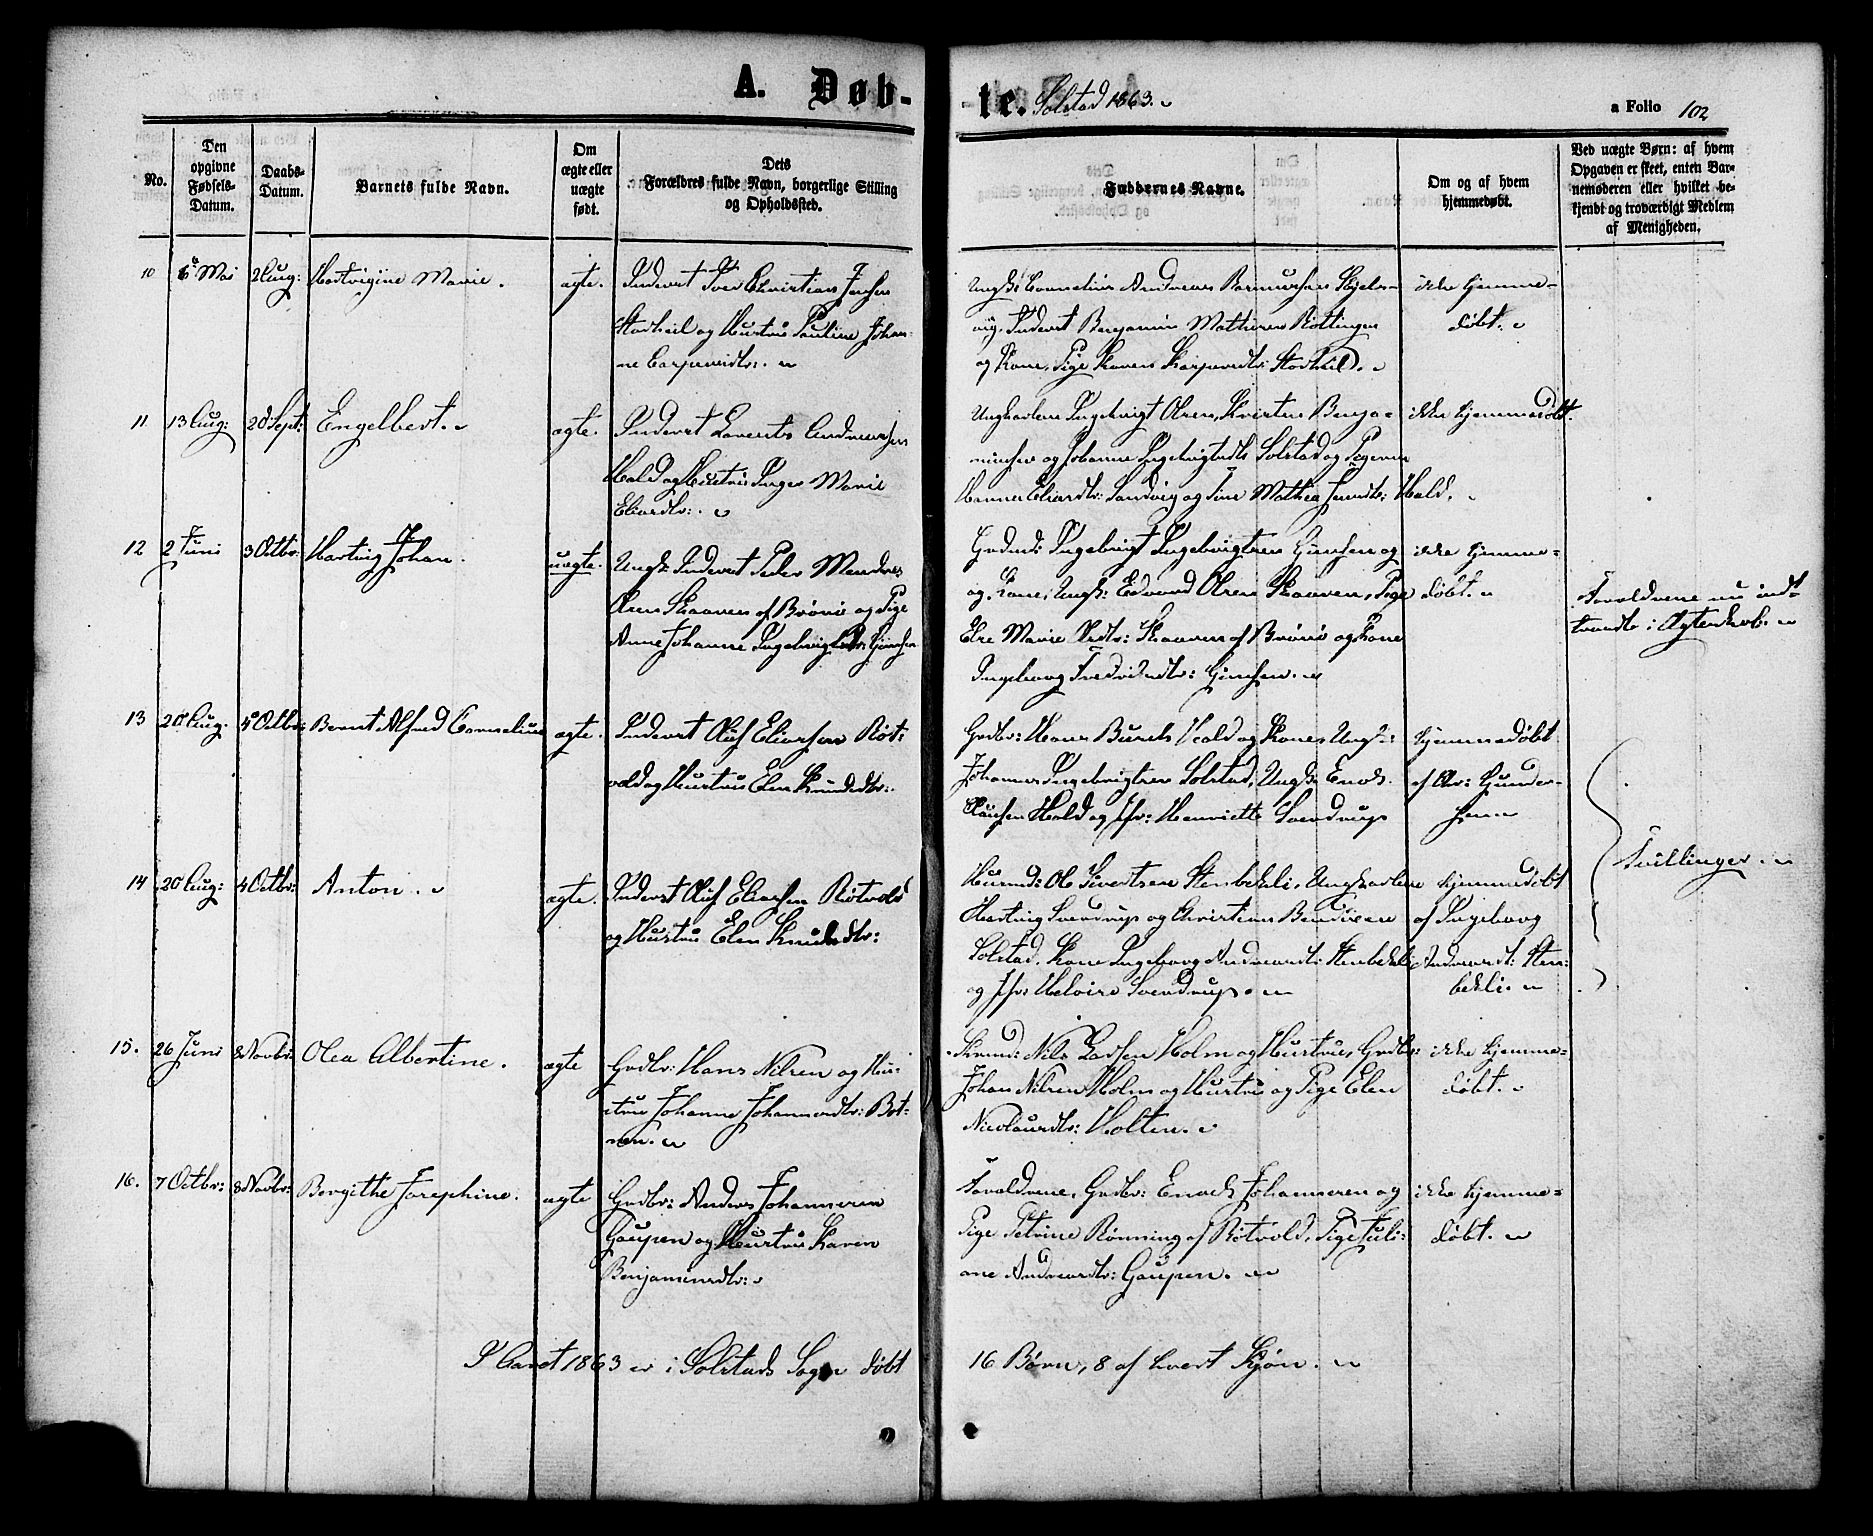 A. Døb-
te. Solstad 1863.
a Folio 102
No.
Den
opgivne
Fødsels-
Datum.
Daabs-
Datum.
Barnets fulde Navn.
Om
ægte eller
uægte
født.
Dets
Forældres fulde Navn, borgerlige Stilling
og Opholdssted.
Faddernes Navne.
Om og af hvem
hjemmedøbt.
Ved uægte Børn: af hvem
Opgaven er skeet, enten Bar-
nemoderen eller hvilket be-
kjendt og troværdigt Medlem
af Menigheden.
10
6 Mai
2 Aug:
Hedevigine Marie.
ægte.
Inderst Iver Christian Jensen
Storheil og Hustru Pauline Johan-
ne Carpersdtr:.
Ungk: Cornelius Andreas Rasmussen Skjels-
vig, Inderst Benjamin Mathisen Røttingen
og Kone, Pige Karen Karpersdtr: Storheil.
ikke hjemme-
døbt.
11
13 Aug:
20 Sept:
Engelbert.
ægte.
Inderst Lorents Andreassen
Hald og Hustru Inger Marie
Eliasdtr:.
Ungkarlene Ingebrigt Olsen, Sivert Benja-
minsen og Johanne Ingebrigtsdtr Solstad og Pigerne
Hanna Eliasdtr: Sandvig og Sine Mathea Jensdtr: Hald.
ikke hjemmedøbt.
12
2 Juni
3 Octbr:
Hartvig Johan.
uægte.
Ungk: Inderst Peder Mendres
Olsen Skaaren af Brønø og Pige
Anne Johanne Ingebrigtsdtr: Gimsen
Grdmd: Ingebrigt Ingebrigtsen Gimsen og
og Kone, Ungk: Edvard Olsen Skaaren, Pige
Else Marie Olsdtr: Skaaren af Brønø og Kone
Ingeborg Fredriksdtr: Gimsen.
ikke hjemme-
døbt.
Forældrene nu ind-
traadt i Ægteskab.
13
20 Aug:
4 Octbr:
Bernt Alfred Cornelius
ægte.
Inderst Oluf Eliassen Røt-
vold og Hustru Elen Knudsdtr:.
Grdbr: Hans Burch Hald og Kone, Ungk:
Johannes Ingebrigtsen Solstad, Ungk: Enok
Clausen Hald og Jfr: Henriette Svendrup
hjemmedøbt
af Chr: Gunder-
sen
14
20 Aug:
4 Octbr:
Anton.
ægte.
Inderst Oluf Eliassen Røtvold
og Hustru Elen Knudsdtr:
Husmd: Ole Sivertsen Stenbekli, Ungkarlene
Hartvig Svendrup og Christian Bendixen
Solstad, Kone Ingeborg Andreasdtr: Stenbekli
og Jfr: Heloise Svendrup.
hjemmedøbt
af Ingeborg
Andreasdt: Sten-
bekli.
Tvillinger.
15.
26 Juni
8 Novbr:
Olea Albertine.
ægte
Grdbr: Hans Nilsen og Hu-
stru Johanne Johannesdtr: Bot-
nen.
Strmd: Nils Larsen Holm og Hustru, Grdbr:
Johan Nilsen Holm og Hustru og Pige Elen
Nicolausdtr: Holten.
ikke hjemme-
døbt.
16.
7 Octbr:
8 Novbr:
Bergithe Josephine.
ægte
Grdbr: Anders Johannesen
Gaupen og Hustru Karen
Benjaminsdtr:
Forældrene, Grdbr: Enoch Johannesen og
Pige Petrine Rønning af Røtvold, Pige Juli-
ane Andreasdtr: Gaupen.
ikke hjemme-
døbt.
I Aaret 1863 er i Solstads Sogn døbt
16 Børn, 8 af hvert Kjøn.